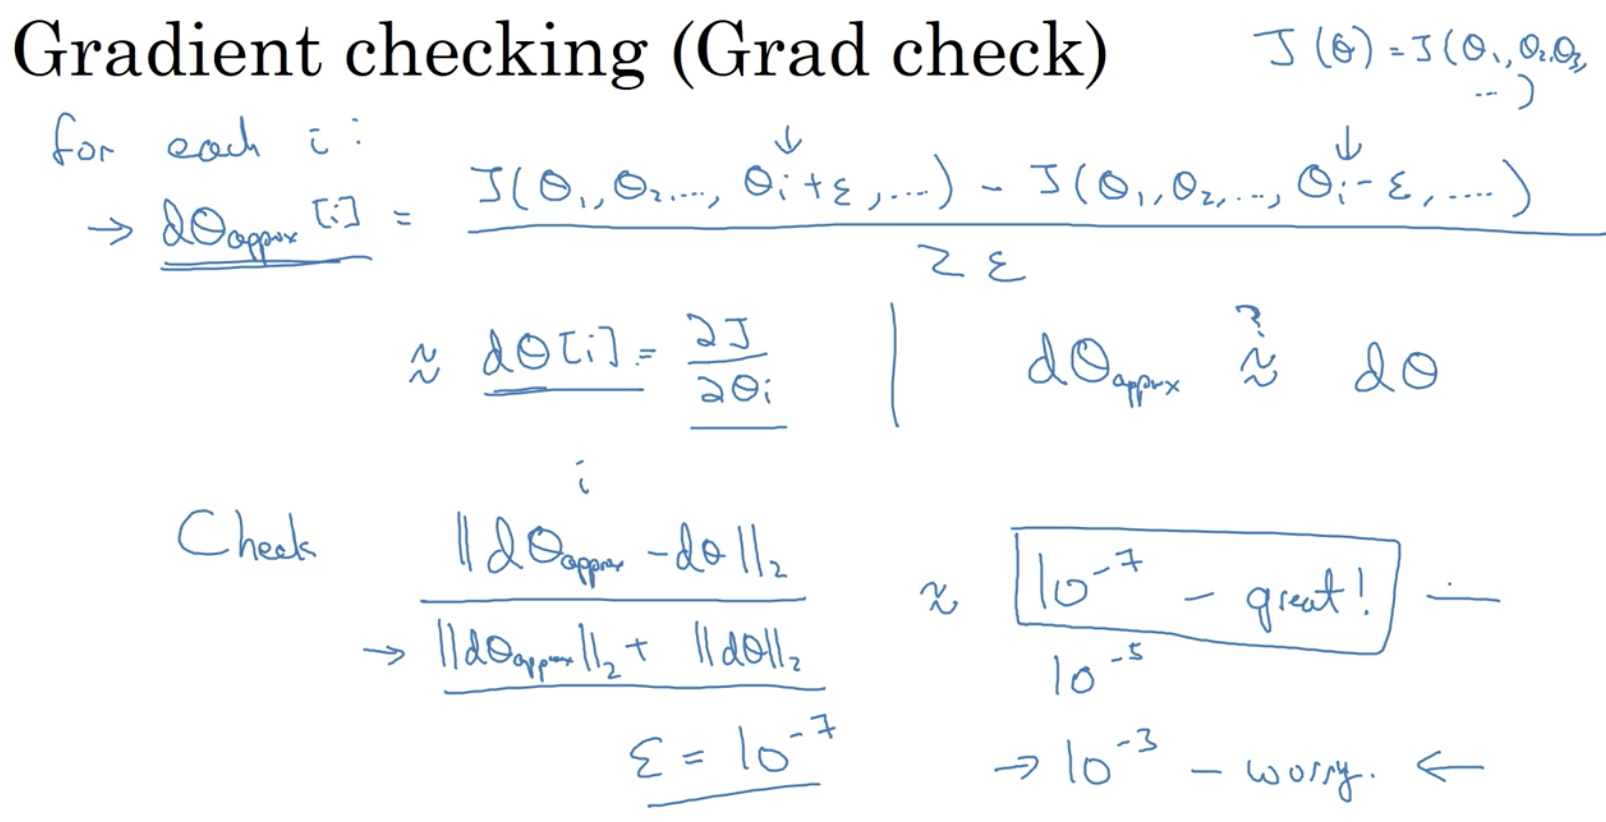 Gradient checking (Grad check)
J(θ) = J(θ₁, θ₂, θ₃, ...)
for each i:
→ dθapprox[i] = (J(θ₁, θ₂, ..., θᵢ+ε, ...) - J(θ₁, θ₂, ..., θᵢ-ε, ...)) / 2ε
≈ dθ[i] = ∂J/∂θᵢ | dθapprox ≈? dθ
i
Check ‖dθapprox - dθ‖₂ / (‖dθapprox‖₂ + ‖dθ‖₂) ≈ 10⁻⁷ - great!
10⁻⁵
ε = 10⁻⁷ → 10⁻³ - worry. ←